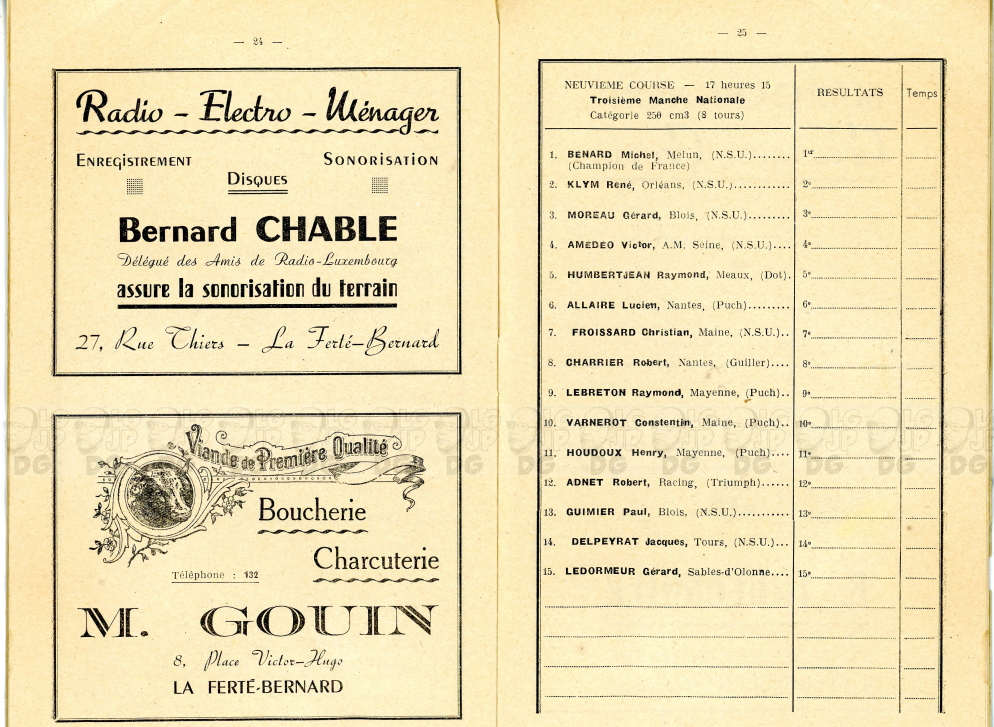 — 24 —
Radio - Electro - Ménager
ENREGISTREMENT SONORISATION
DISQUES
Bernard CHABLE
Délégué des Amis de Radio-Luxembourg
assure la sonorisation du terrain
27, Rue Thiers — La Ferté-Bernard
Viande de Première Qualité
Boucherie
Charcuterie
Téléphone : 132
M. GOUIN
8, Place Victor-Hugo
LA FERTÉ-BERNARD
— 25 —
NEUVIÈME COURSE — 17 heures 15
Troisième Manche Nationale
Catégorie 250 cm3 (8 tours)
RESULTATS
Temps
1. BENARD Michel, Melun, (N.S.U.)........ 1er
(Champion de France)
2. KLYM René, Orléans, (N.S.U.)............ 2e
3. MOREAU Gérard, Blois, (N.S.U.)......... 3e
4. AMEDEO Victor, A.M. Seine, (N.S.U.).... 4e
5. HUMBERTJEAN Raymond, Meaux, (Dot). 5e
6. ALLAIRE Lucien, Nantes, (Puch)......... 6e
7. FROISSARD Christian, Maine, (N.S.U.).. 7e
8. CHARRIER Robert, Nantes, (Guiller).... 8e
9. LEBRETON Raymond, Mayenne, (Puch).. 9e
10. VARNEROT Constentin, Maine, (Puch).. 10e
11. HOUDOUX Henry, Mayenne, (Puch).... 11e
12. ADNET Robert, Racing, (Triumph)...... 12e
13. GUIMIER Paul, Blois, (N.S.U.)........... 13e
14. DELPEYRAT Jacques, Tours, (N.S.U.)... 14e
15. LEDORMEUR Gérard, Sables-d'Olonne.... 15e